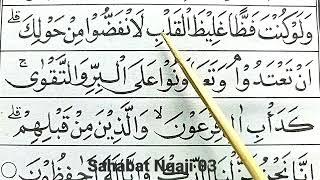 وَلَوْ كُنْتَ فَظًّا غَلِيْظَ الْقَلْبِ لَانْفَضُّوْا مِنْ حَوْلِكَ ۖ
اَنْ تَعْتَدُوْا ۘ وَتَعَاوَنُوْا عَلَى الْبِرِّ وَالتَّقْوٰى ۖ
كَدَأْبِ اٰلِ فِرْعَوْنَ ۙ وَالَّذِيْنَ مِنْ قَبْلِهِمْ ۗ
Sahabat Ngaji 03
اِنَّا نَحْنُ نَزَّلْنَا لَحٰفِظُوْنَ